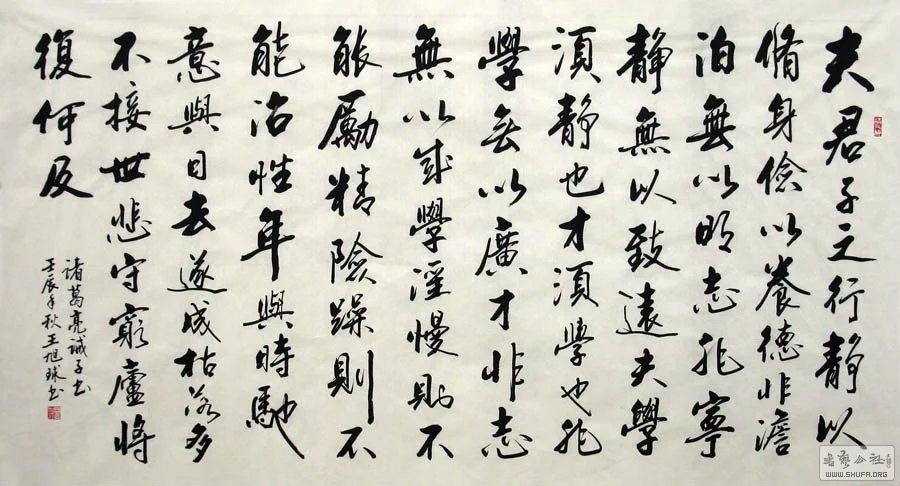 夫君子之行靜以
脩身儉以養德非澹
泊無以明志非寧
靜無以致遠夫學
須靜也才須學也非
學無以廣才非志
無以成學淫慢則不
能勵精險躁則不
能治性年與時馳
意與日去遂成枯落多
不接世悲守窮廬將
復何及
諸葛亮誡子书
壬辰年秋王旭球书
书藝公社
WWW.SHUFA.ORG